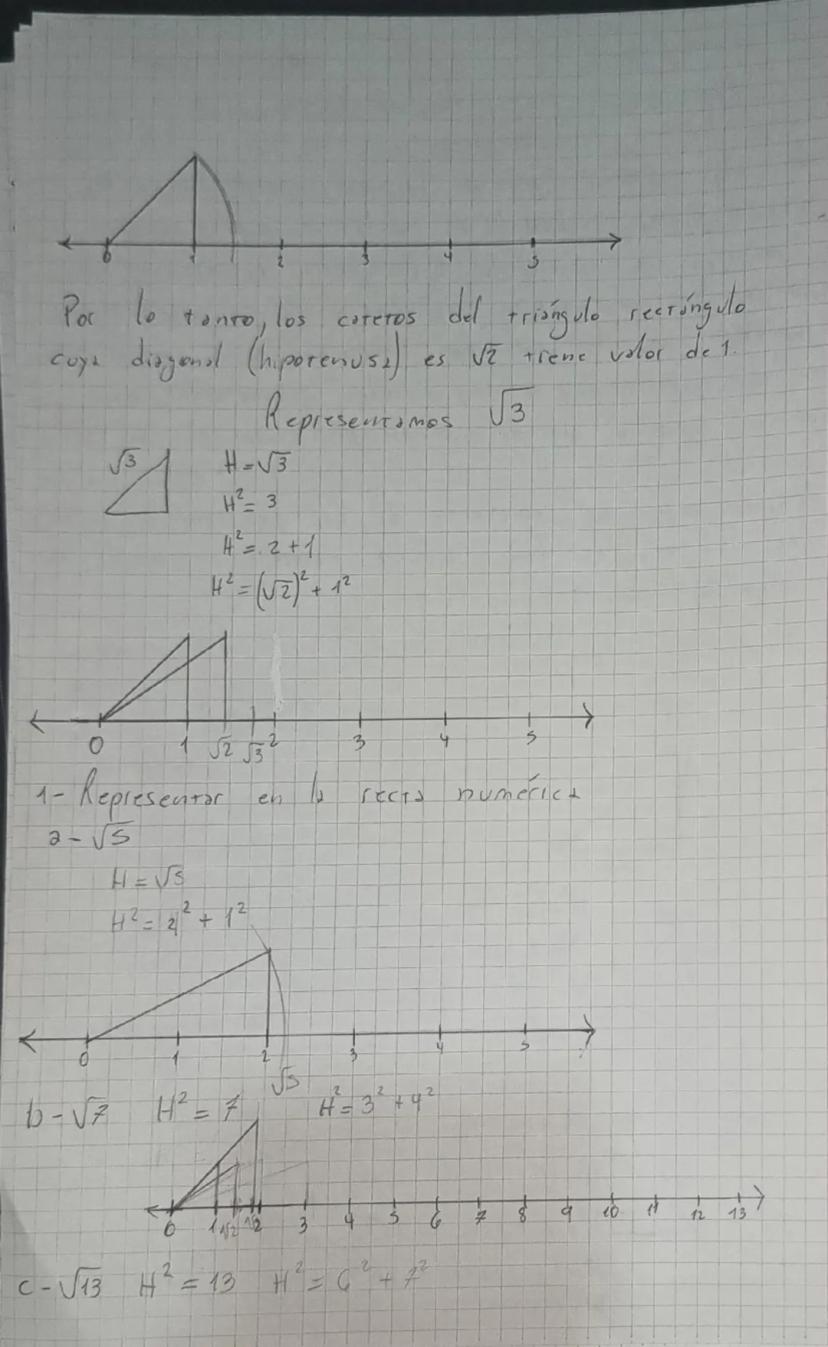 0 1 2 3 4 5
Por lo tanto, los catetos del triángulo rectángulo
cuya diagonal (hipotenusa) es √2 tiene valor de 1.
Representamos √3
√3 H=√3
H²= 3
H²= 2+1
H²=(√2)²+ 1²
0 1 √2 √3 2 3 4 5
1- Representar en la recta numérica
a- √5
H=√5
H²= 2² + 1²
0 1 2 3 4 5
√5
b-√7 H²= 7 H²= 3²+4²
0 1 √2 2 3 4 5 6 7 8 9 10 11 12 13
c-√13 H²= 13 H²= 6²+7²